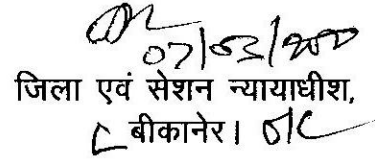 07/03/
जिला एवं सेशन न्यायाधीश,
बीकानेर।